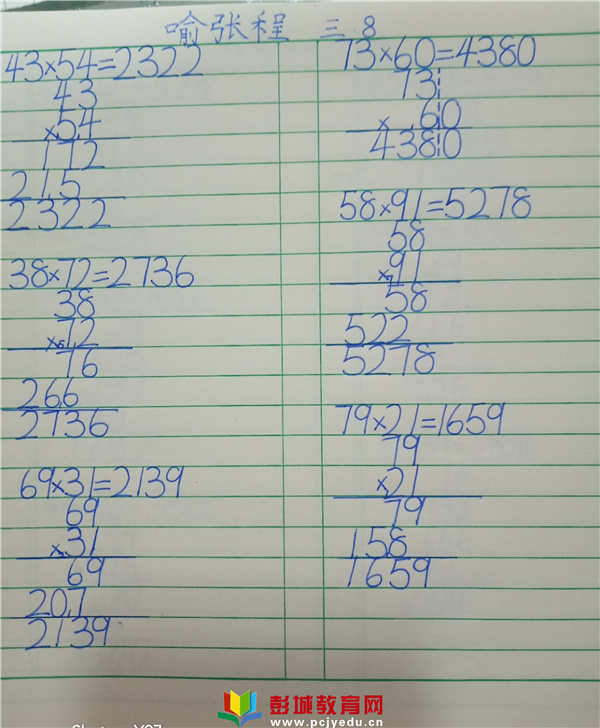 喻张程 三.8
43×54=2322
43
×54
172
215
2322
38×72=2736
38
×72
76
266
2736
69×31=2139
69
×31
69
207
2139
73×60=4380
73
×60
4380
58×91=5278
58
×91
58
522
5278
79×21=1659
79
×21
79
158
1659
彭城教育网
www.pcjyedu.cn